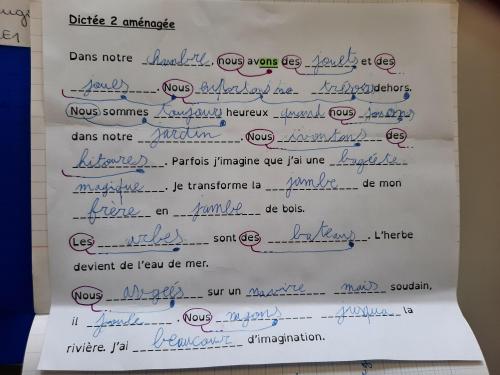 Dictée 2 aménagée
Dans notre chambre, nous avons des jouets et des
joues. Nous dehors.
Nous sommes toujours heureux quand nous jouons
dans notre jardin. Nous inventons des
hitoires. Parfois j'imagine que j'ai une bagéte
magique. Je transforme la jambe de mon
frère en jambe de bois.
Les arbes sont des bateaus. L'herbe
devient de l'eau de mer.
Nous sur un navire mais soudain,
il. Nous jusqua la
rivière. J'ai beaucour d'imagination.